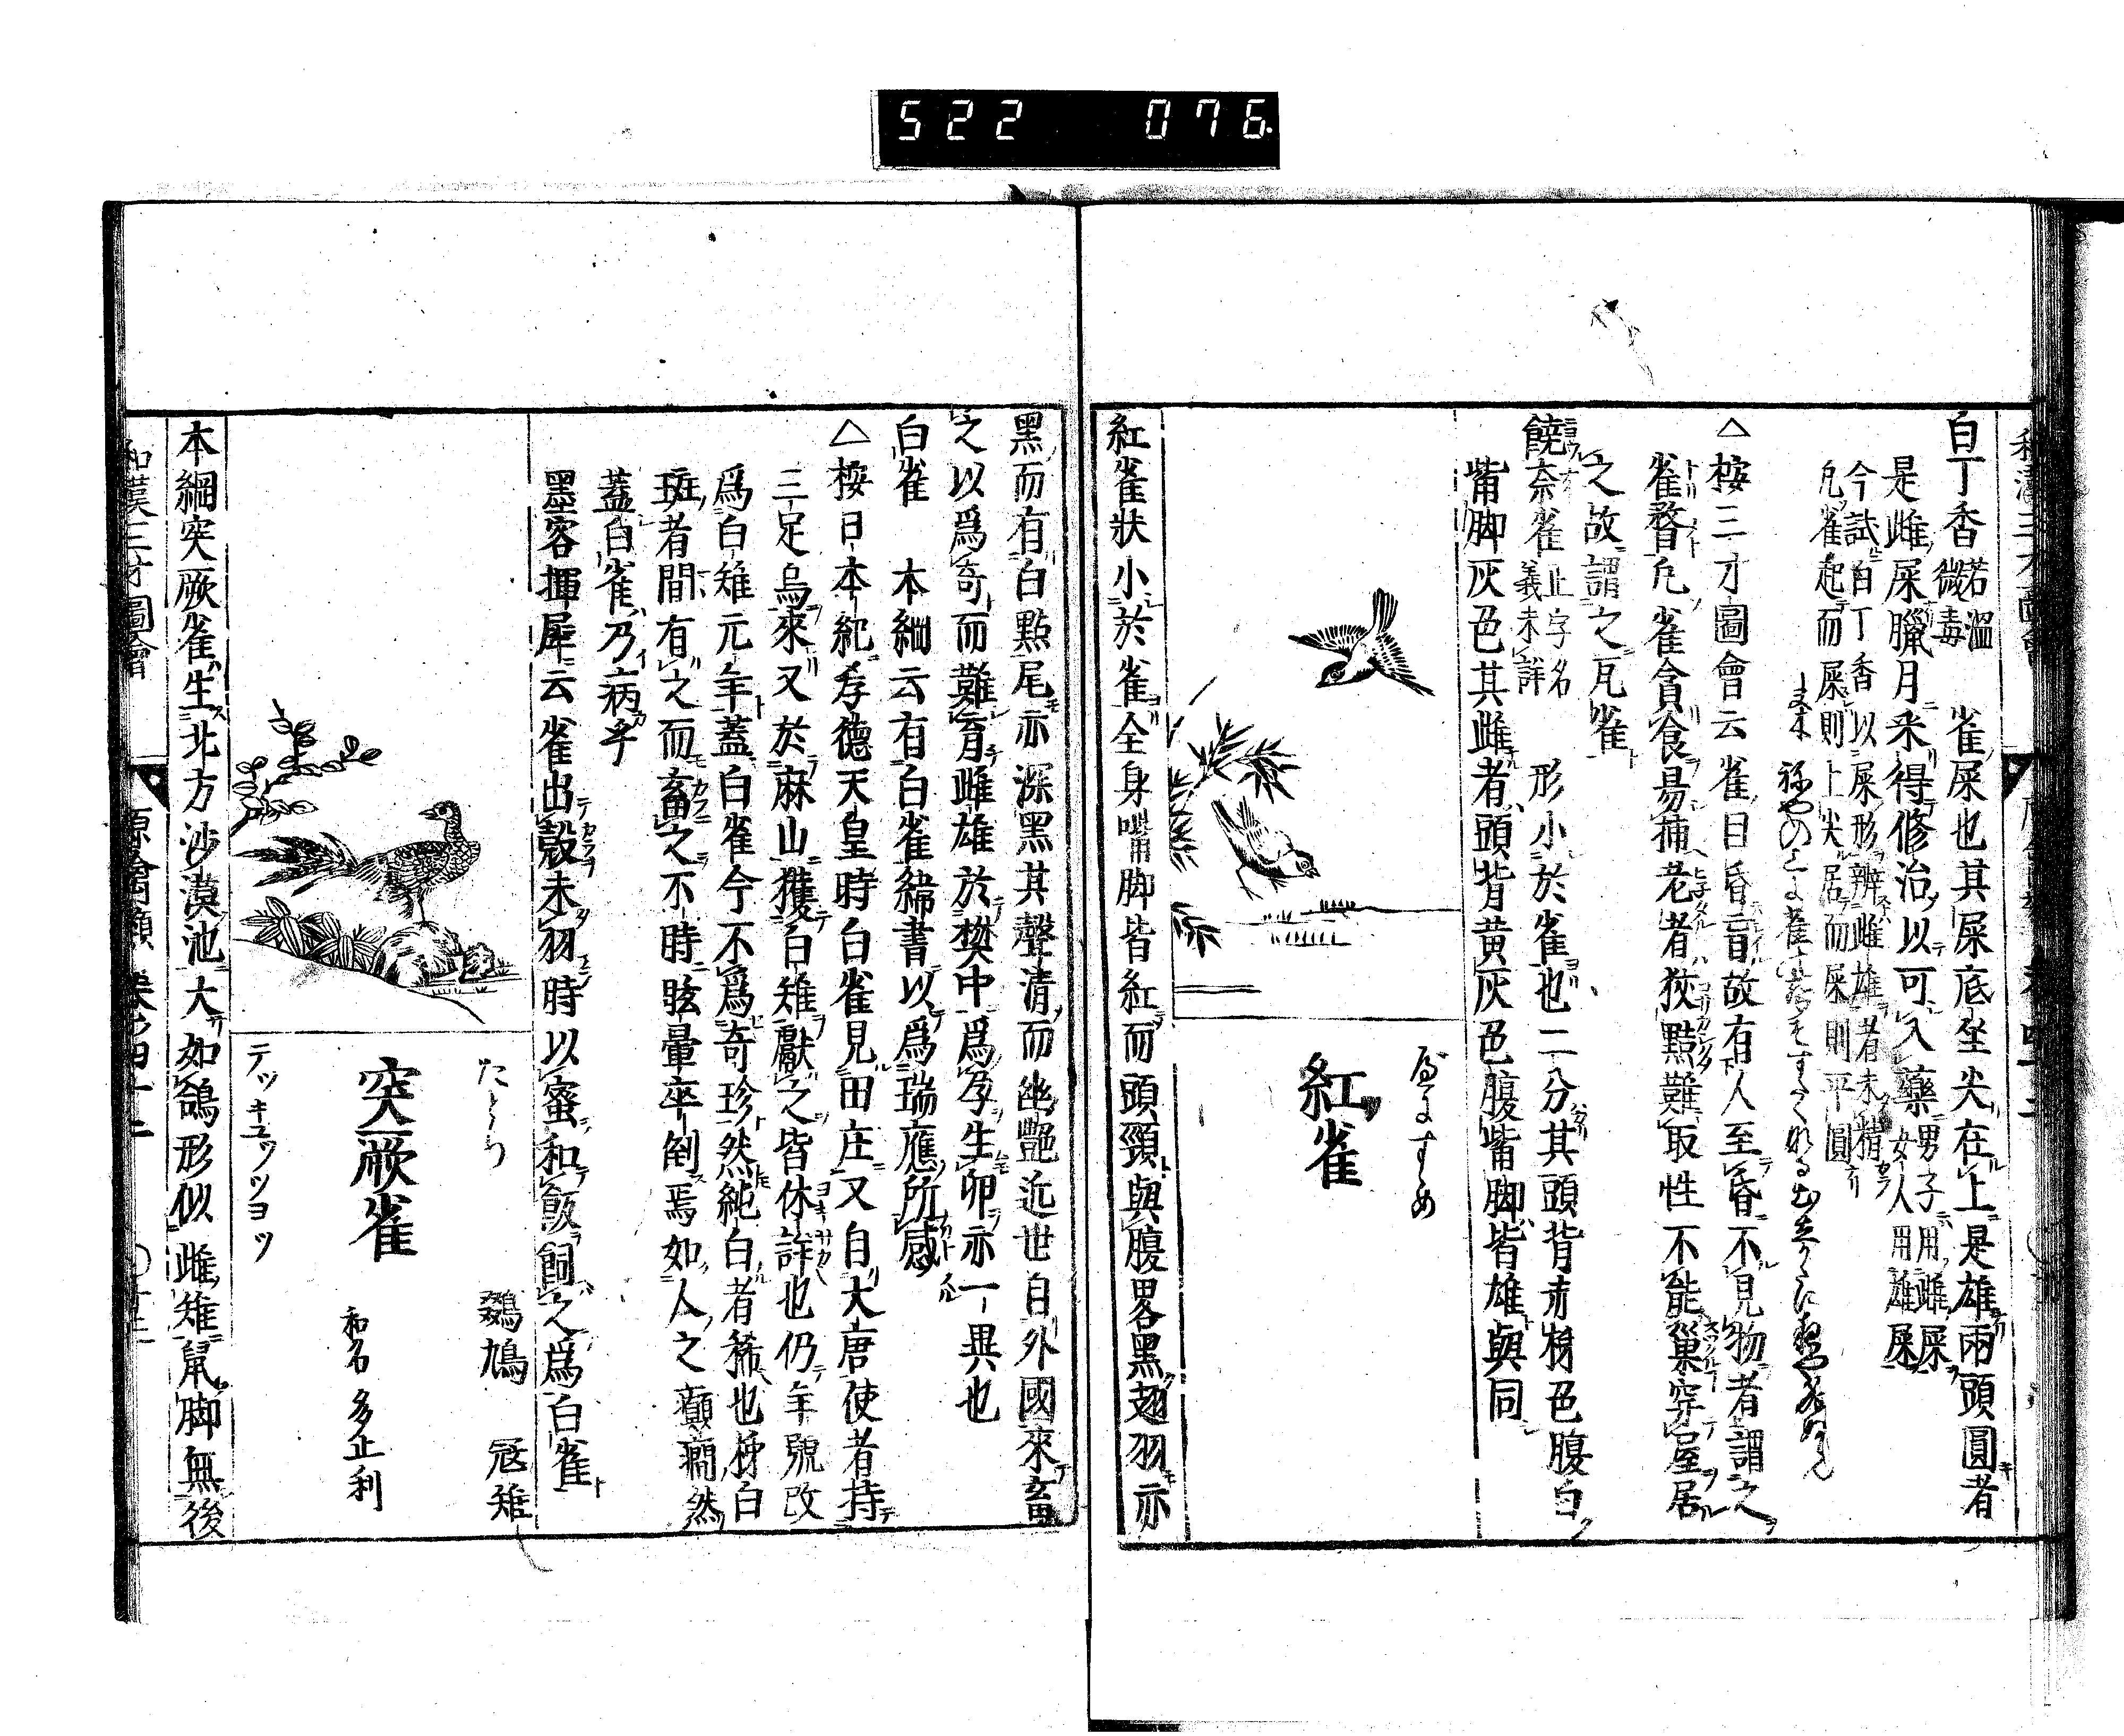 522 076
白丁香 苦温微毒 雀屎也其屎底坐尖在上是雄兩頭圓者
是雌屎臘月采得修治以可入藥 男子用雌屎女人用雄屎
今試白丁香以屎形辨雌雄者未精
凡雀起而屎則上尖居而屎則平圓
△桉三才圖會云雀日昏盲故有人至昏不見物者謂之
雀瞀凡雀貪食易捕老者狡黠難取性不能巢穿屋居
之故謂之瓦雀
饒奈雀 止字名義未詳 形小於雀也二分其頭背赤樺色腹白
觜脚灰色其雌者頭背黄灰色腹觜脚皆雄與同
紅雀
べにすゞめ
紅雀狀小於雀全身嘴脚皆紅而頭頸與腹畧黑翅羽亦
黑而有白點尾亦深黑其聲清而幽艶近世自外國來畜
之以爲奇而難育雌雄於樊中爲孕生卵亦一異也
白雀 本綱云有白雀緯書以爲瑞應所感
△桉日本紀孝德天皇時白雀見田庄又自大唐使者持
三足烏來又於麻山獲白雉獻之皆休詳也仍年號改
爲白雉元年蓋白雀今不爲奇珍然純白者稀也桺白
斑者間有之而畜之不時眩暈卒倒焉如人之癲癇然
蓋白雀乃病乎
墨客揮犀云雀出㲉未羽時以蜜和飯飼之爲白雀
たとり
鵽鳩 冦雉
突厥雀
和名 多止利
テッキユツツヨッ
本綱突厥雀生北方沙漠池大如鴿形似雌雉鼠脚無後
和漢三才圖會 原禽類 卷之四十二